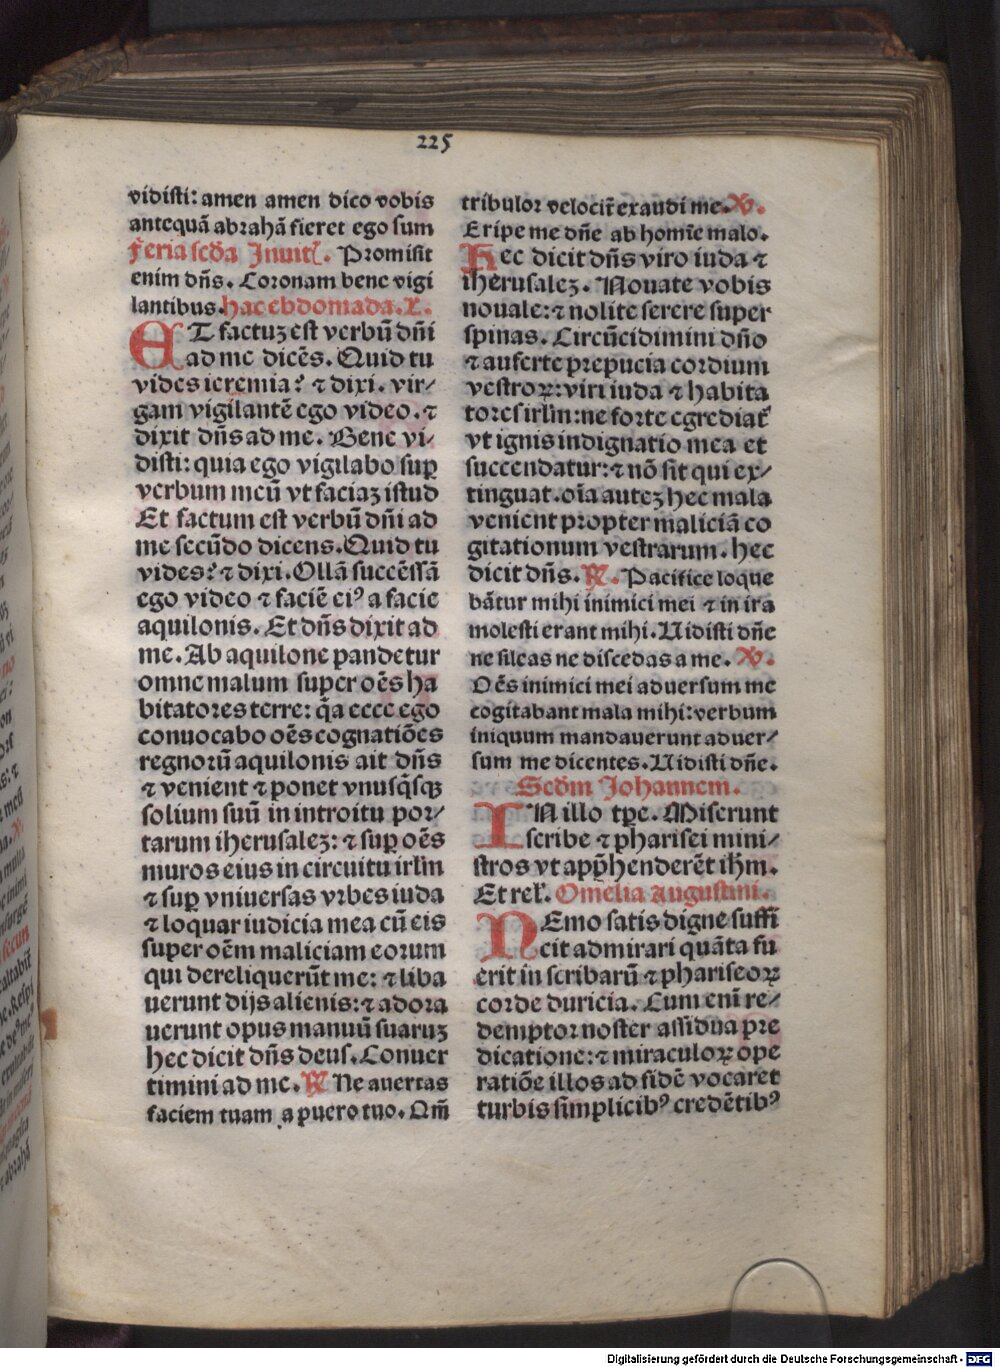 225
vidisti: amen amen dico vobis
antequā abrahā fieret ego sum
Feria scđa Inuitꝭ. Promisit
enim dñs. Coronam bene vigi
lantibus. Hac ebdomada. X.
ET factuȝ est verbū dñi
ad me dicēs. Quid tu
vides ieremia? ⁊ dixi. vir⸗
gam vigilantē ego video. ⁊
dixit dñs ad me. Bene vi⸗
disti: quia ego vigilabo suꝑ
verbum meū vt faciaȝ istud
Et factum est verbū dñi ad
me secūdo dicens. Quid tu
vides? ⁊ dixi. Ollā succēssā
ego video ⁊ faciē eiꝰ a facie
aquilonis. Et dñs dixit ad
me. Ab aquilone pandetur
omne malum super oēs ha
bitatores terre: q̄a ecce ego
conuocabo oēs cognatiōes
regnorū aquilonis ait dñs
⁊ venient ⁊ ponet vnusq̄sqꝫ
solium suū in introitu por⸗
tarum iherusaleȝ: ⁊ suꝑ oēs
muros eius in circuitu irl̄m
⁊ suꝑ vniuersas vrbes iuda
⁊ loquar iudicia mea cū eis
super oēm maliciam eorum
qui dereliquerūt me: ⁊ liba
uerunt dijs alienis: ⁊ adora
uerunt opus manuū suaruȝ
hec dicit dñs deus. Conuer
timini ad me. ℟ Ne auertas
faciem tuam a puero tuo. Qm̄
tribulor velocit̄ exaudi me. ℣.
Eripe me dñe ab homīe malo.
Hec dicit dñs viro iuda ⁊
iherusaleȝ. Nouate vobis
nouale: ⁊ nolite serere super
spinas. Circūcidimini dño
⁊ auferte prepucia cordium
vestroꝝ: viri iuda ⁊ habita
tores irl̄m: ne forte egrediat̄
vt ignis indignatio mea et
succendatur: ⁊ nō sit qui ex⸗
tinguat. oīa auteȝ hec mala
venient propter maliciā co
gitationum vestrarum. hec
dicit dñs. ℟. Pacifice loque
bātur mihi inimici mei ⁊ in ira
molesti erant mihi. Uidisti dñe
ne sileas ne discedas a me. ℣.
Oēs inimici mei aduersum me
cogitabant mala mihi: verbum
iniquum mandauerunt aduer⸗
sum me dicentes. Uidisti dñe.
Scđm Johannem.
IN illo tꝑe. Miserunt
scribe ⁊ pharisei mini⸗
stros vt app̄henderēt ih̄m.
Et relꝭ. Omelia augustini.
NEmo satis digne suffi
cit admirari quāta fu
erit in scribarū ⁊ phariseoꝝ
corde duricia. Cum enī re⸗
demptor noster assidua pre
dicatione: ⁊ miraculoꝝ ope
ratiōe illos ad fidē vocaret
turbis simplicibꝰ credētibꝰ
Digitalisierung gefördert durch die Deutsche Forschungsgemeinschaft - DFG